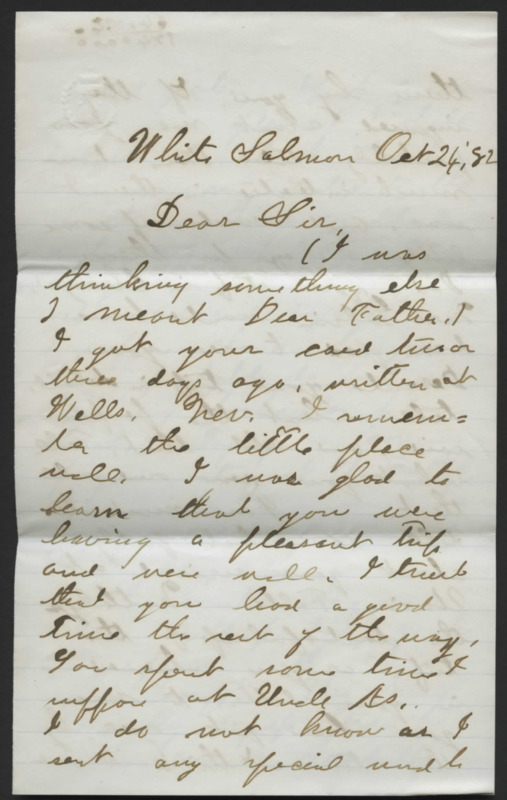 White Salmon Oct 24, '82
Dear Sir,
(I was
thinking something else
I meant Dear Father.)
I got your card two or
three days ago, written at
Wells. Nev. I remem=
ber the little place
well. I was glad to
learn that you were
having a pleasant trip
and were well. I trust
that you had a good
time the rest of the way.
You spent some time I
suppose at Uncle As.
I do not know as I
sent any special